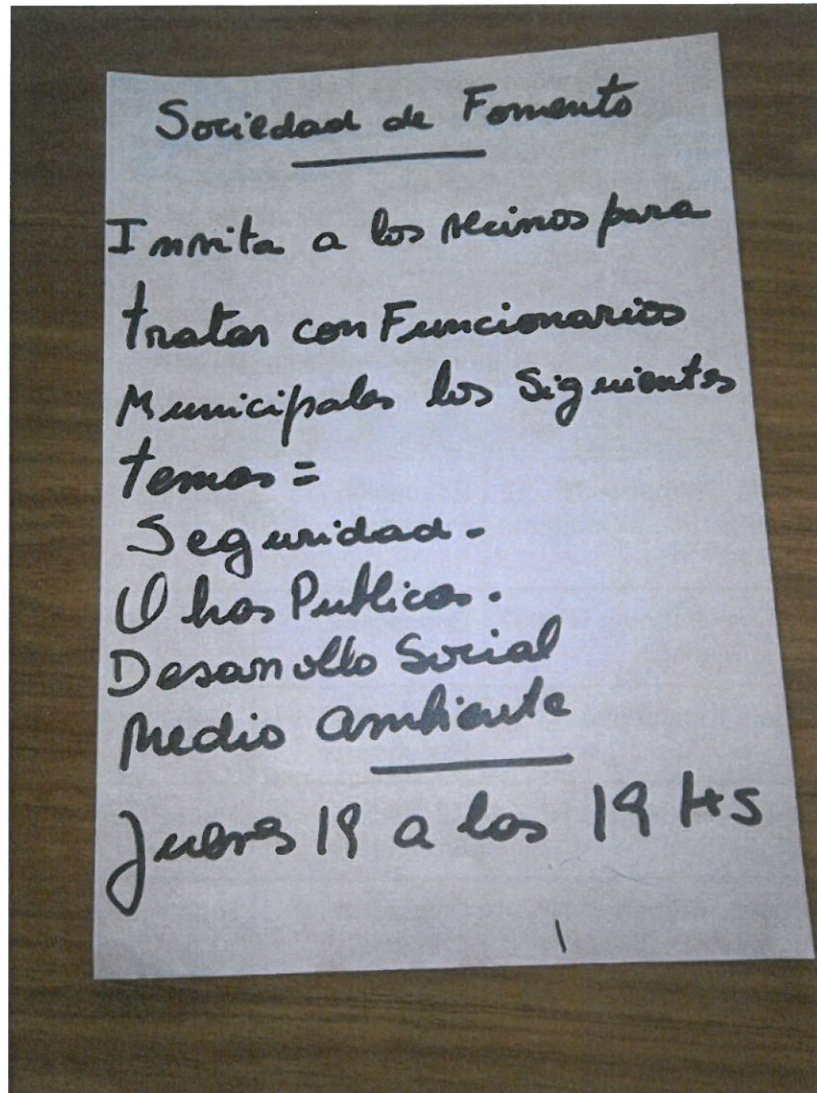 Sociedad de Fomento
Invita a los vecinos para
tratar con Funcionarios
Municipales los Siguientes
temas =
Seguridad.
Obras Publicas.
Desarrollo Social
Medio Ambiente
Jueves 19 a las 19 Hs